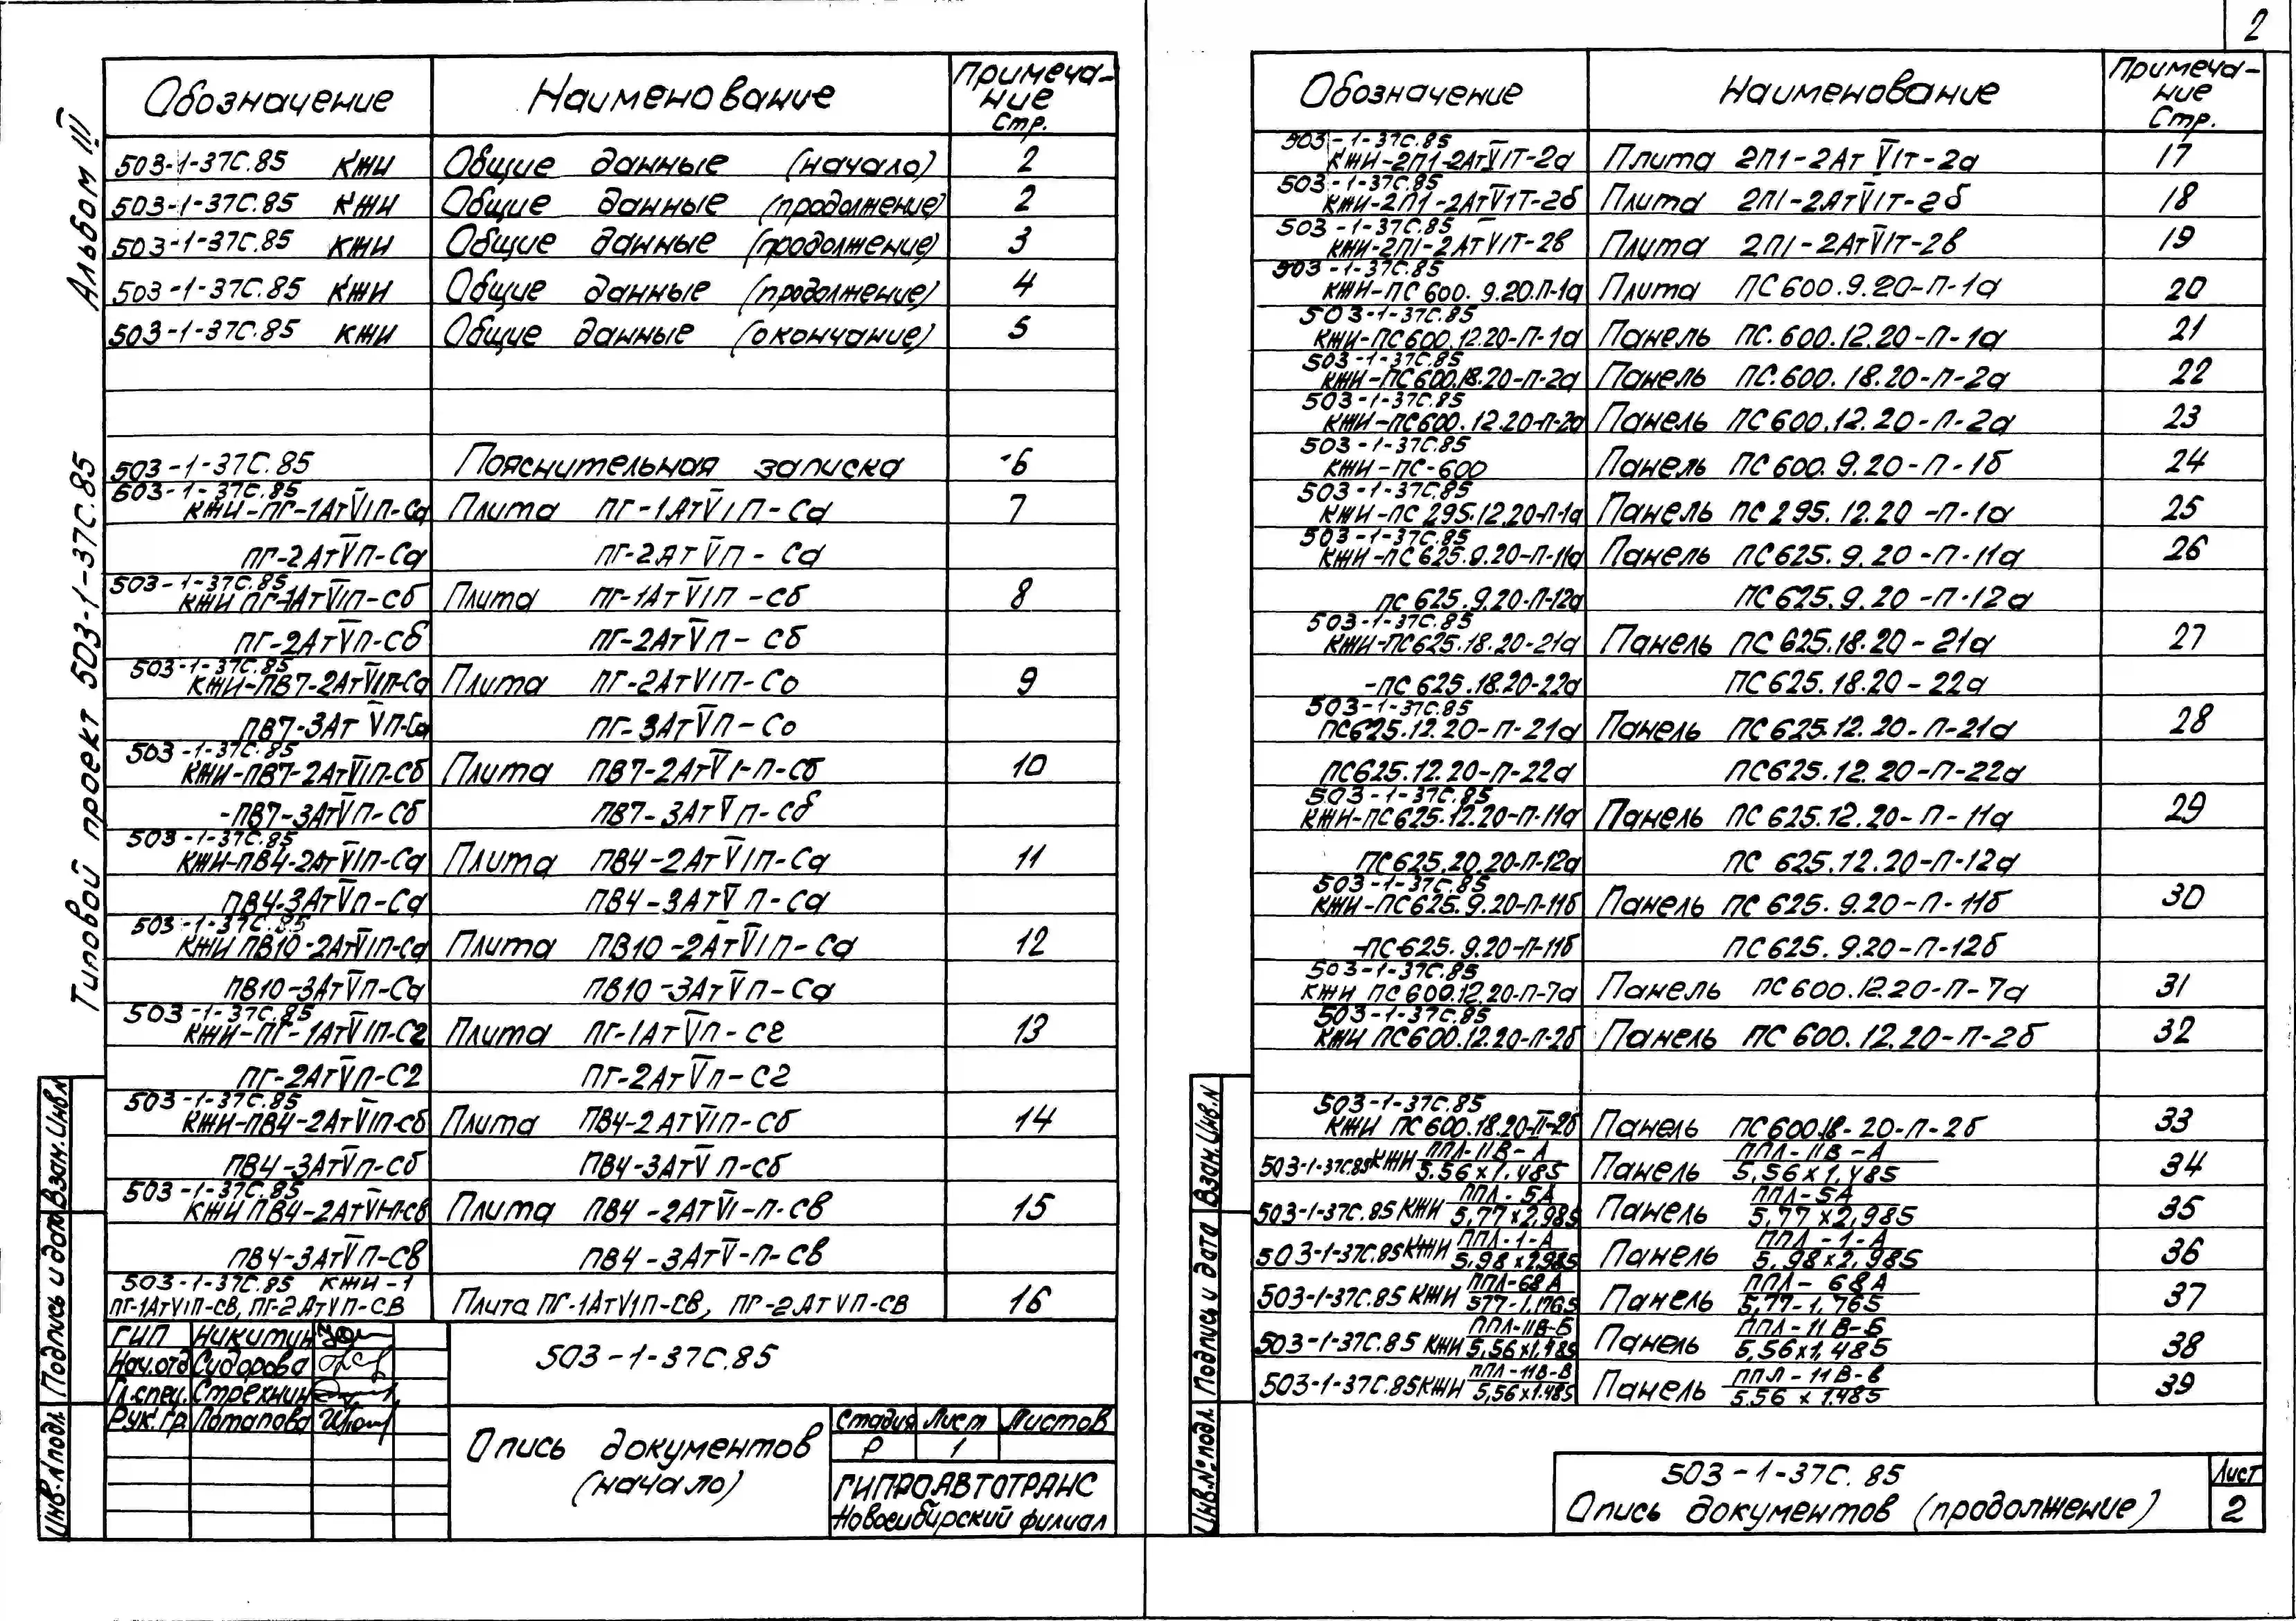 2
Альбом III
Типовой проект 503-1-37С.85
Обозначение Наименование Примеча-
ние
Стр.
503-1-37С.85 КЖИ Общие данные (начало) 2
503-1-37С.85 КЖИ Общие данные (продолжение) 2
503-1-37С.85 КЖИ Общие данные (продолжение) 3
503-1-37С.85 КЖИ Общие данные (продолжение) 4
503-1-37С.85 КЖИ Общие данные (окончание) 5
503-1-37С.85 Пояснительная записка 6
503-1-37С.85
КЖИ-ПГ-1АтVIП-Са Плита ПГ-1АтVIП-Са 7
ПГ-2АтVП-Са ПГ-2АтVП-Са
503-1-37С.85
КЖИ ПГ-1АтVIП-Сб Плита ПГ-1АтVIП-Сб 8
ПГ-2АтVП-Сб ПГ-2АтVП-Сб
503-1-37С.85
КЖИ-ПВ7-2АтVIП-Са Плита ПГ-2АтVIП-Со 9
ПВ7-3АтVП-Са ПГ-3АтVП-Со
503-1-37С.85
КЖИ-ПВ7-2АтVIП-Сб Плита ПВ7-2АтVI-П-Сб 10
-ПВ7-3АтVП-Сб ПВ7-3АтVП-Сб
503-1-37С.85
КЖИ-ПВ4-2АтVIП-Са Плита ПВ4-2АтVIП-Са 11
ПВ4-3АтVП-Са ПВ4-3АтVП-Са
503-1-37С.85
КЖИ ПВ10-2АтVIП-Са Плита ПВ10-2АтVIП-Са 12
ПВ10-3АтVП-Са ПВ10-3АтVП-Са
503-1-37С.85
КЖИ-ПГ-1АтVIП-С2 Плита ПГ-1АтVП-С2 13
ПГ-2АтVП-С2 ПГ-2АтVП-С2
503-1-37С.85
КЖИ-ПВ4-2АтVIП-сб Плита ПВ4-2АтVIП-Сб 14
ПВ4-3АтVП-Сб ПВ4-3АтVП-сб
503-1-37С.85
КЖИ ПВ4-2АтVI-П-св Плита ПВ4-2АтVI-П-св 15
ПВ4-3АтVП-Св ПВ4-3АтV-П-Св
503-1-37С.85 КЖИ-1
ПГ-1АтVIП-СВ, ПГ-2АтVП-СВ Плита ПГ-1АтVIП-СВ, ПГ-2АтVП-СВ 16
ГИП Никитин
Нач.отд Сидорова
Гл.спец. Стрехнин
Рук.гр. Потапова
503-1-37С.85
Опись документов
(начало)
Стадия Лист Листов
Р 1
ГИПРОАВТОТРАНС
Новосибирский филиал
Взам.Инв.N
Подпись и дата
Инв.N подл
Обозначение Наименование Примеча-
ние
Стр.
503-1-37С.85
КЖИ-2П1-2АтVIТ-2а Плита 2П1-2АтVIТ-2а 17
503-1-37С.85
КЖИ-2П1-2АтVIТ-2б Плита 2П1-2АтVIТ-2б 18
503-1-37С.85
КЖИ-2П1-2АтVIТ-2в Плита 2П1-2АтVIТ-2в 19
503-1-37С.85
КЖИ-ПС600.9.20.П-1а Плита ПС600.9.20-П-1а 20
503-1-37С.85
КЖИ-ПС600.12.20-П-1а Панель ПС.600.12.20-П-1а 21
503-1-37С.85
КЖИ-ПС600.18.20-П-2а Панель ПС.600.18.20-П-2а 22
503-1-37С.85
КЖИ-ПС600.12.20-П-2а Панель ПС600.12.20-П-2а 23
503-1-37С.85
КЖИ-ПС-600 Панель ПС600.9.20-П-1б 24
503-1-37С.85
КЖИ-ПС295.12.20-П-1а Панель ПС295.12.20-П-1а 25
503-1-37С.85
КЖИ-ПС625.9.20-П-11а Панель ПС625.9.20-П-11а 26
ПС625.9.20-П-12а ПС625.9.20-П-12а
503-1-37С.85
КЖИ-ПС625.18.20-21а Панель ПС625.18.20-21а 27
-ПС625.18.20-22а ПС625.18.20-22а
503-1-37С.85
ПС625.12.20-П-21а Панель ПС625.12.20-П-21а 28
ПС625.12.20-П-22а ПС625.12.20-П-22а
503-1-37С.85
КЖИ-ПС625.12.20-П-11а Панель ПС625.12.20-П-11а 29
ПС625.20.20-П-12а ПС 625.12.20-П-12а
503-1-37С.85
КЖИ-ПС625.9.20-П-11б Панель ПС625.9.20-П-11б 30
-ПС-625.9.20-П-11б ПС625.9.20-П-12б
503-1-37С.85
КЖИ ПС600.12.20-П-7а Панель ПС600.12.20-П-7а 31
503-1-37С.85
КЖИ ПС600.12.20-П-2б Панель ПС600.12.20-П-2б 32
503-1-37С.85
КЖИ ПС600.18.20-П-2б Панель ПС600.18-20-П-2б 33
503-1-37С.85 КЖИ ППЛ-11В-А / 5.56х1.485 Панель ППЛ-11В-А / 5,56х1,485 34
503-1-37С.85 КЖИ ППЛ-5А / 5,77х2,985 Панель ППЛ-5А / 5,77х2,985 35
503-1-37С.85 КЖИ ППЛ-1-А / 5,98х2.985 Панель ППЛ-1-А / 5.98х2,985 36
503-1-37С.85 КЖИ ППЛ-68А / 577-1.1765 Панель ППЛ-68А / 5,77-1.765 37
503-1-37С.85 КЖИ ППЛ-11В-Б / 5,56х1.485 Панель ППЛ-11В-Б / 5,56х1,485 38
503-1-37С.85 КЖИ ППЛ-11В-В / 5,56х1.485 Панель ППЛ-11В-в / 5.56х1.485 39
Взам.Инв.N
Подпись и дата
Инв.№ подл.
503-1-37С.85
Опись документов (продолжение)
Лист
2